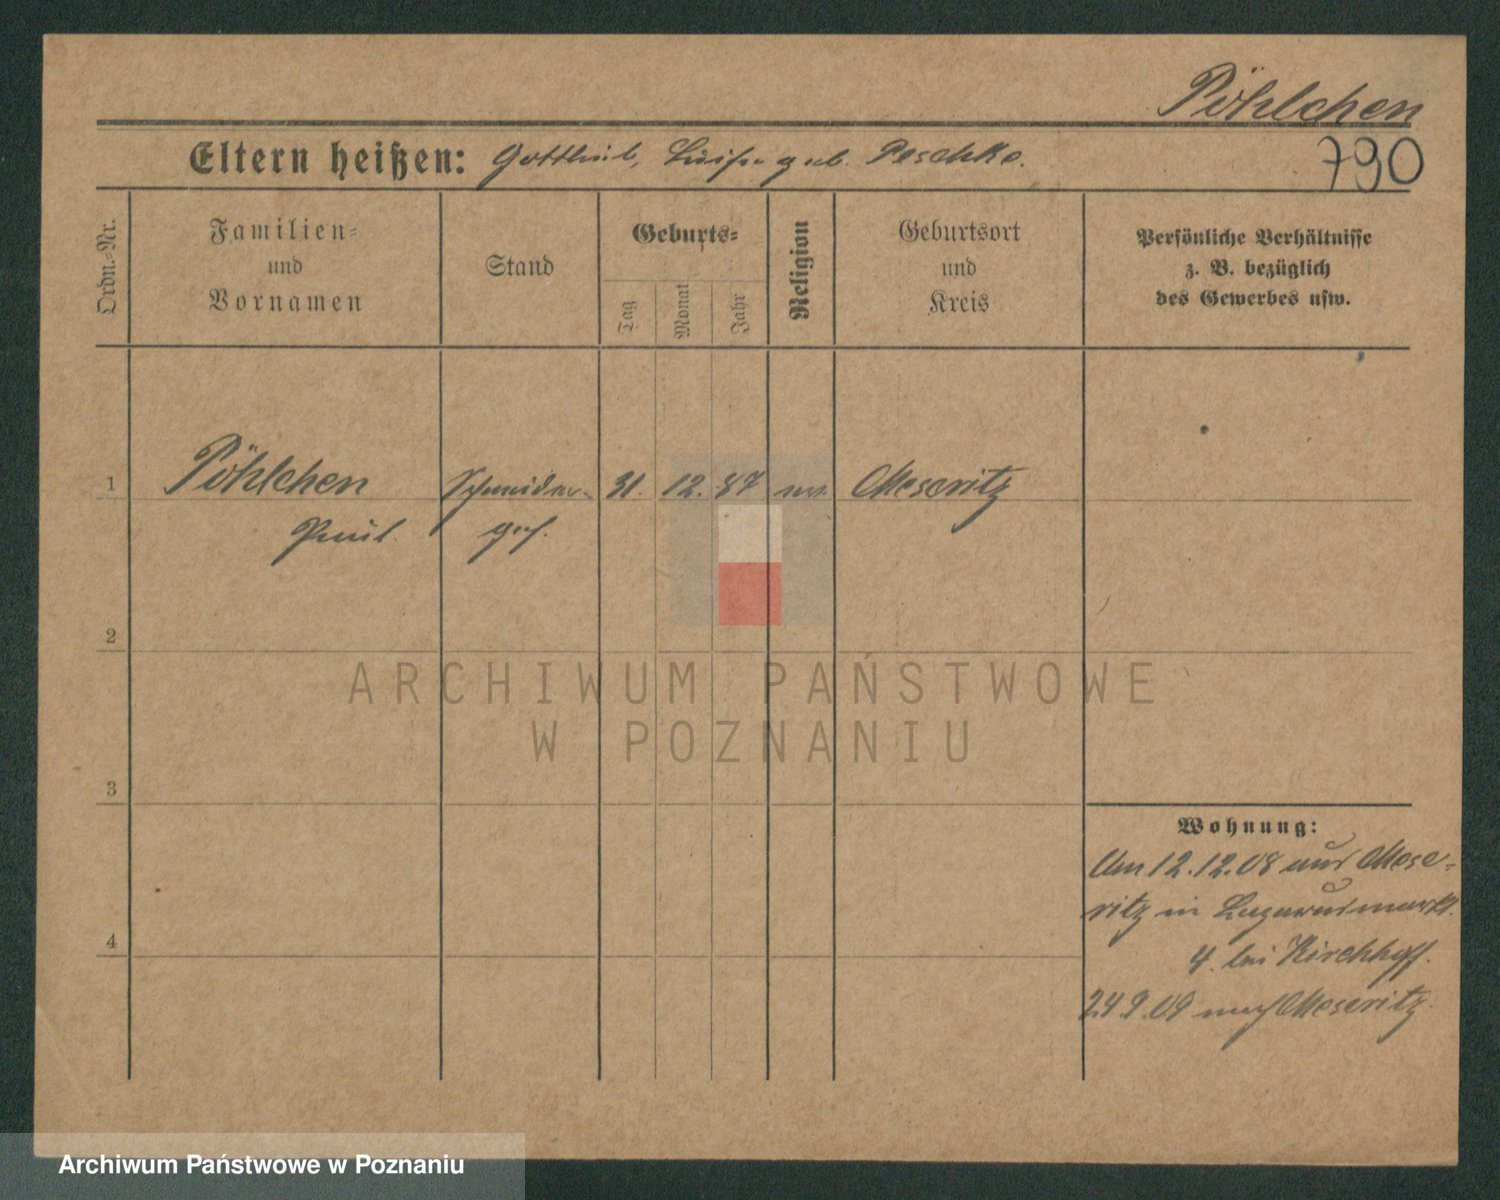 Pöhlchen
790
Eltern heißen: Gottlieb, Luise geb. Peschke.
Ordn.-Nr.
Familien-
und
Vornamen
Stand
Geburts-
Tag
Monat
Jahr
Religion
Geburtsort
und
Kreis
Persönliche Verhältnisse
z. B. bezüglich
des Gewerbes usw.
1
Pöhlchen
Paul.
Schneider-
ges.
31. 12. 87
ev.
Meseritz
2
ARCHIWUM PAŃSTWOWE
W POZNANIU
3
Wohnung:
Am 12.12.08 aus Mese-
ritz in Lazarusmarkt.
4. bei Kirchhoff.
24.9.09 nach Meseritz.
4
Archiwum Państwowe w Poznaniu